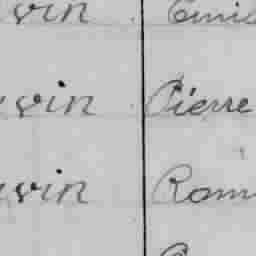 vin Emi
vin Pierre
vin Rom